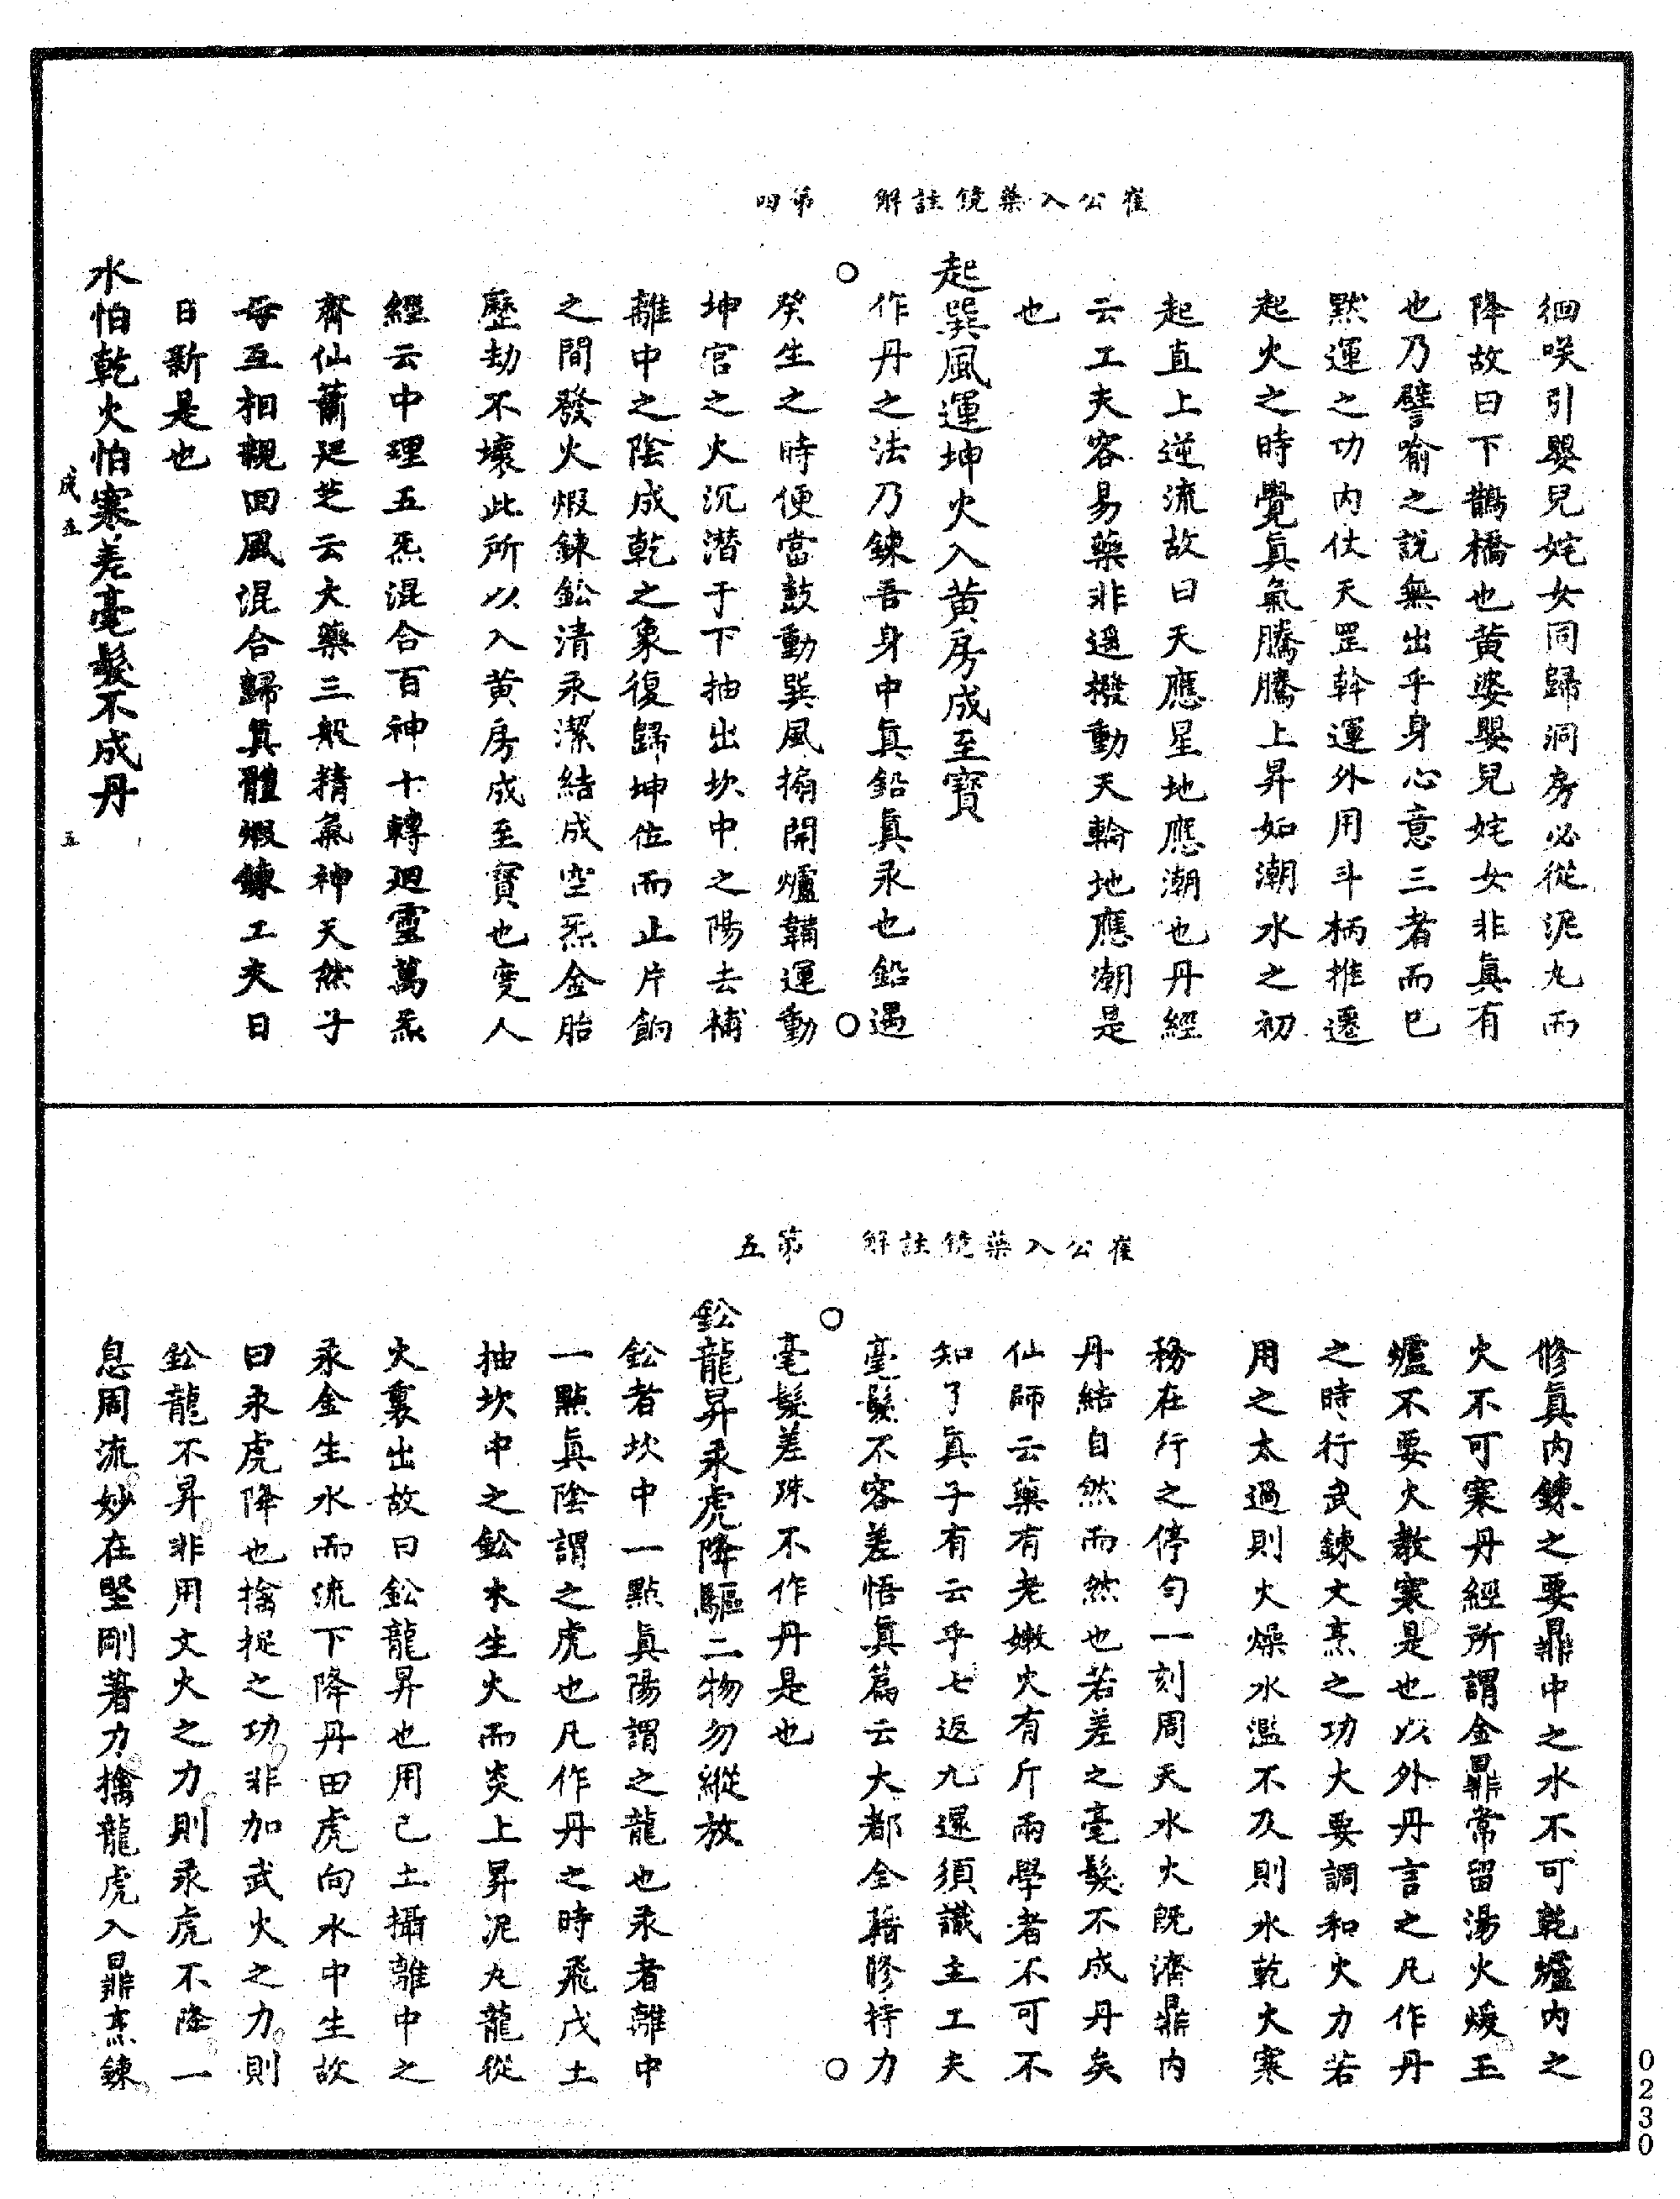 崔公入藥鏡註解　第四
徊咲引嬰兒姹女同歸洞房必從泥丸而
降故曰下鵲橋也黃婆嬰兒姹女非眞有
也乃譬喻之說無出乎身心意三者而已
默運之功內仗天罡斡運外用斗柄推遷
起火之時覺眞氣騰騰上昇如潮水之初
起直上逆流故曰天應星地應潮也丹經
云工夫容易藥非遥撥動天輪地應潮是
也
起巽風運坤火入黃房成至寶
作丹之法乃鍊吾身中眞鉛眞汞也鉛遇
癸生之時便當鼓動巽風搧開爐鞴運動
坤宮之火沉潜于下抽出坎中之陽去補
離中之陰成乾之象復歸坤位而止片餉
之間發火煆鍊鈆清汞潔結成空炁金胎
歷劫不壞此所以入黃房成至寶也度人
經云中理五炁混合百神十轉廻靈萬炁
齊仙蕭廷芝云大藥三般精氣神天然子
母互相親回風混合歸眞體煆鍊工夫日
日新是也
水怕乾火怕寒差毫髮不成丹
成五　五
崔公入藥鏡註解　第五
修眞內鍊之要鼎中之水不可乾爐內之
火不可寒丹經所謂金鼎常留湯火煖玉
爐不要火教寒是也以外丹言之凡作丹
之時行武鍊文烹之功大要調和火力若
用之太過則火燥水濫不及則水乾火寒
務在行之停勻一刻周天水火旣濟鼎內
丹結自然而然也若差之毫髮不成丹矣
仙師云藥有老嫩火有斤兩學者不可不
知了眞子有云乎七返九還須識主工夫
毫髮不容差悟眞篇云大都全藉脩持力
毫髮差殊不作丹是也
鈆龍昇汞虎降驅二物勿縱放
鈆者坎中一點眞陽謂之龍也汞者離中
一點眞陰謂之虎也凡作丹之時飛戊土
抽坎中之鈆木生火而炎上昇泥丸龍從
火裏出故曰鈆龍昇也用己土攝離中之
汞金生水而流下降丹田虎向水中生故
曰汞虎降也擒捉之功非加武火之力則
鈆龍不昇非用文火之力則汞虎不降一
息周流妙在堅剛著力擒龍虎入鼎烹鍊
0230